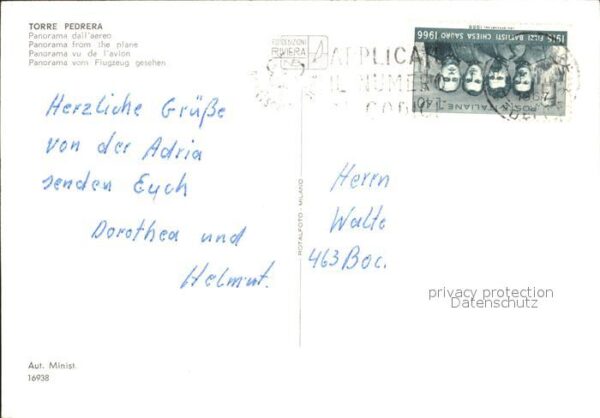 TORRE PEDRERA
Panorama dall'aereo
Panorama from the plane
Panorama vu de l'avion
Panorama vom Flugzeug gesehen
ESPOSIZIONI
RIVIERA
APPLICA
IL NUMERO
1916 FILZI BATTISTI CHIESA SAURO 1966
POSTE ITALIANE L.40
Herzliche Grüße
von der Adria
senden Euch
Dorothea und
Helmut.
ROTALFOTO - MILANO
Herrn
Walte
463 Boc.
privacy protection
Datenschutz
Aut. Minist.
16938